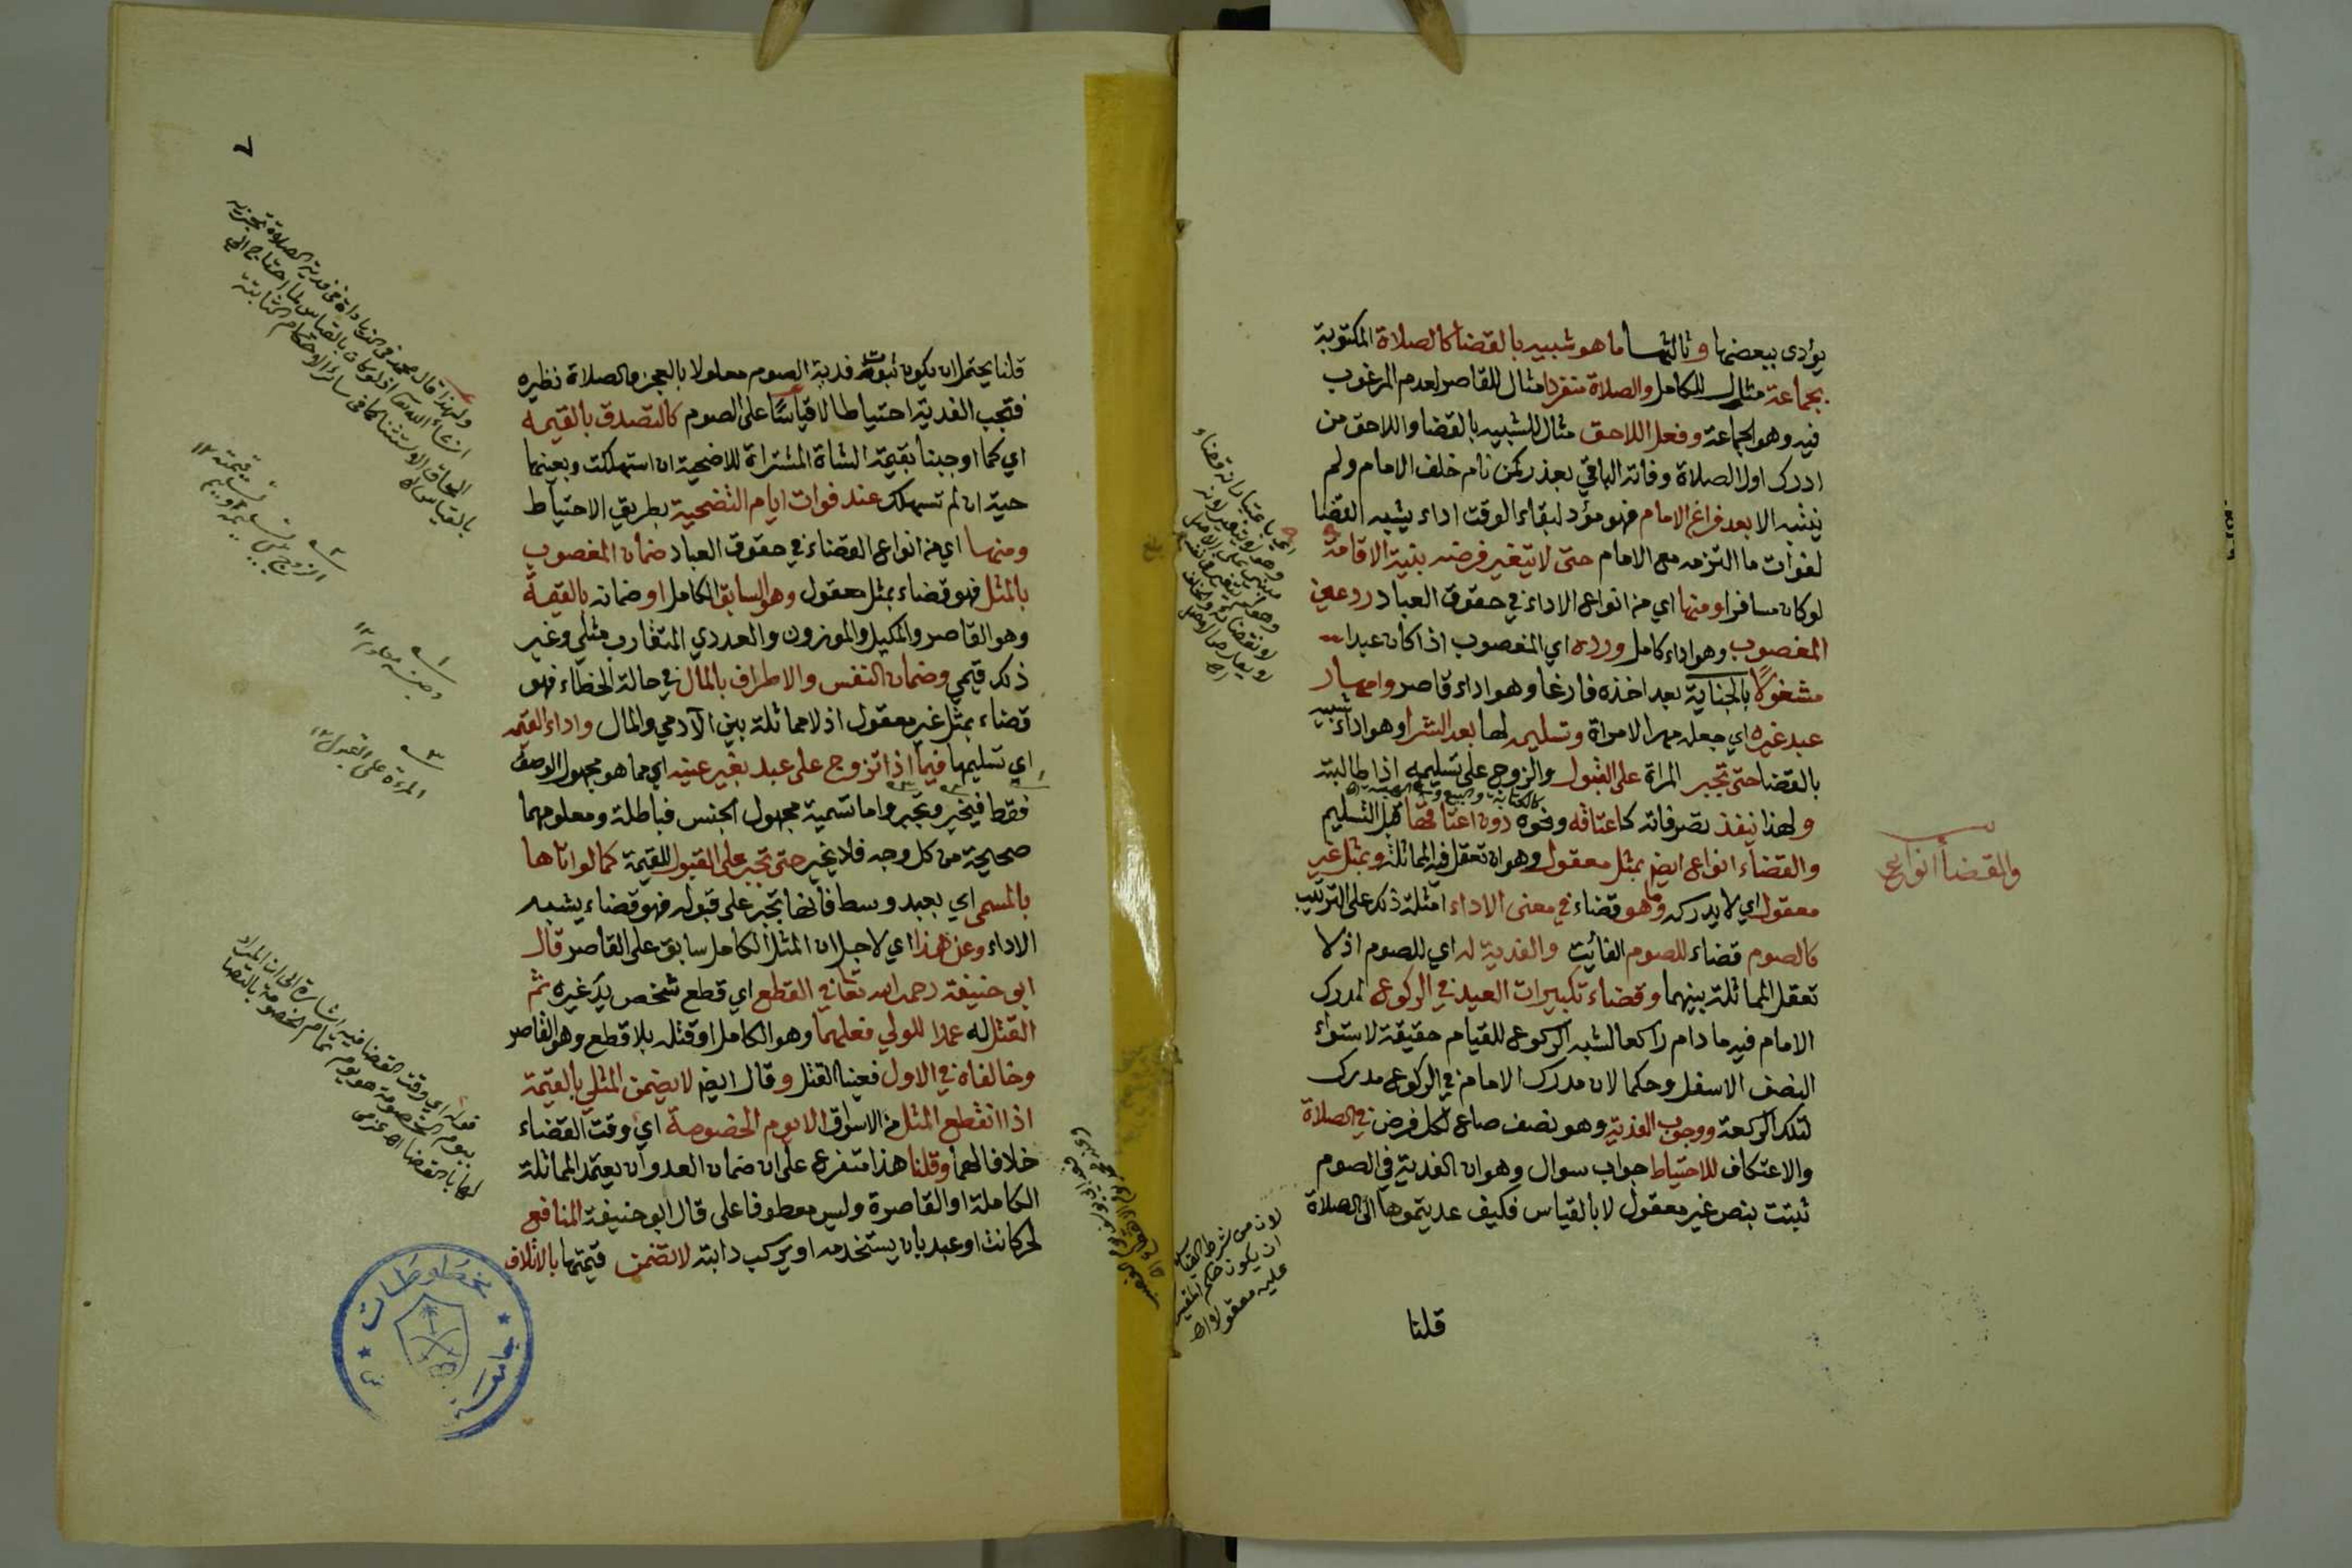 يؤدى ببعضها وثالثها ما هو شبيه بالقضا كالصلاة المكتوبة
بجماعة مثال للكامل والصلاة منفردا مثال للقاصر لعدم المرغوب
فيه وهو الجماعة وفعل اللاحق مثال للشبيه بالقضا واللاحق من
ادرك اول الصلاة وفاته الباقي بعذر كمن نام خلف الامام ولم
ينتبه الا بعد فراغ الامام فهو مؤد لبقاء الوقت اداء يشبه القضا
لفوات ما التزمه مع الامام حتى لا يتغير فرضه بنية الاقامة
لو كان مسافرا ومنها اي من انواع الاداء في حقوق العباد رد عين
المغصوب وهو اداء كامل ورده اي المغصوب اذا كان عبدا
مشغولا بالجناية بعد اخذه فارغا وهو اداء قاصر وامهار
عبد غيره اي جعله مهر الامراة وتسليمه لها بعد الشرا وهو اداء شبيه
بالقضا حتى تجبر المراة على القبول والزوج على تسليمه اذا طالبته
ولهذا ينفذ تصرفاته كاعتاقه ونحوه دون اعتاقها قبل التسليم
والقضاء انواع ايضم بمثل معقول وهو ان تعقل فيه المماثلة وبمثل غير
معقول اي لا يدركه وما هو قضاء في معنى الاداء امثلة ذكر على الترتيب
كالصوم قضاء للصوم الفائيت والفدية له اي للصوم اذ لا
تعقل المماثلة بينهما وقضاء تكبيرات العيد في الركوع لمدرك
الامام فيه ما دام راكعا لشبه الركوع للقيام حقيقة لاستواء
النصف الاسفل وحكما لان مدرك الامام في الركوع مدرك
لتلك الركعة ووجوب الفدية وهو نصف صاع لكل فرض في الصلاة
والاعتكاف للاحتياط جواب سوال وهو ان الفدية في الصوم
ثبتت بنص غير معقول لا بالقياس فكيف عديتموها الى الصلاة
قلنا
والقضا أنواع
لان من شرط القياس
ان يكون حكم المقيس
عليه معقولا اه
٧
قلنا يحتمل ان يكون ثبوت فدية الصوم معلولا بالعجز والصلاة نظيره
فتجب الفدية احتياطا لا قياسًا على الصوم كالتصدق بالقيمه
اي كما اوجبنا بقيمة الشاة المشتراة للاضحية ان استهلكت وبعينها
حية ان لم تستهلك عند فوات ايام التضحية بطريق الاحتياط
ومنها اي من انواع القضاء في حقوق العباد ضمان المغصوب
بالمثل فهو قضاء بمثل معقول وهو السابق الكامل او ضمانه بالقيمة
وهو القاصر والمكيل والموزون والعددي المتقارب مثلي وغير
ذلك قيمي وضمان النفس والاطراف بالمال في حالة الخطاء فهو
قضاء بمثل غير معقول اذ لا مماثلة بين الآدمي والمال واداء القيمه
اي تسليمها فيما اذا تزوج على عبد بغير عينه اي مما هو مجهول الوصف
فقط فيخير وتجبر واما تسمية مجهول الجنس فباطلة ومعلومهما
صحيحة من كل وجه فلا يخير حتى تجبر على القبول للقيمة كما لو اتاها
بالمسمى اي بعبد وسط فانها تجبر على قبوله فهو قضاء يشبه
الاداء وعن هذا اي لاجل ان المثل الكامل سابق على القاصر قال
ابو حنيفة رحمه الله تعا في القطع اي قطع شخص يد غيره ثم
القتل له عمدا للولي فعلهما وهو الكامل او قتله بلا قطع وهو القاصر
وخالفاه في الاول فعينا القتل وقال ايضم لا يضمن المثلي بالقيمة
اذا انقطع المثل من الاسواق الا يوم الخصومة اي وقت القضاء
خلافا لهما وقلنا هذا متفرع على ان ضمان العدوان يعتمد المماثلة
الكاملة او القاصرة وليس معطوفا على قال ابو حنيفة المنافع
لحر كانت او عبد بان يستخدمه او يركب دابته لا تضمن قيمتها بالاتلاف
ولهذا قال محمد في الزيادات في فدية الصلاة تجزيه
ان شاء الله تعا اذ لو كان بالقياس لما احتاج الى
الحاق الاستثنا كما في سائر الاحكام الثابتة
بالقياس اه
المرءة على القبول ١٢
قوله اي وقت القضا فيه اشارة الى ان المراد
بيوم الخصومة هو يوم تمام الخصومة بالقضا
مخطوطات
جامعة